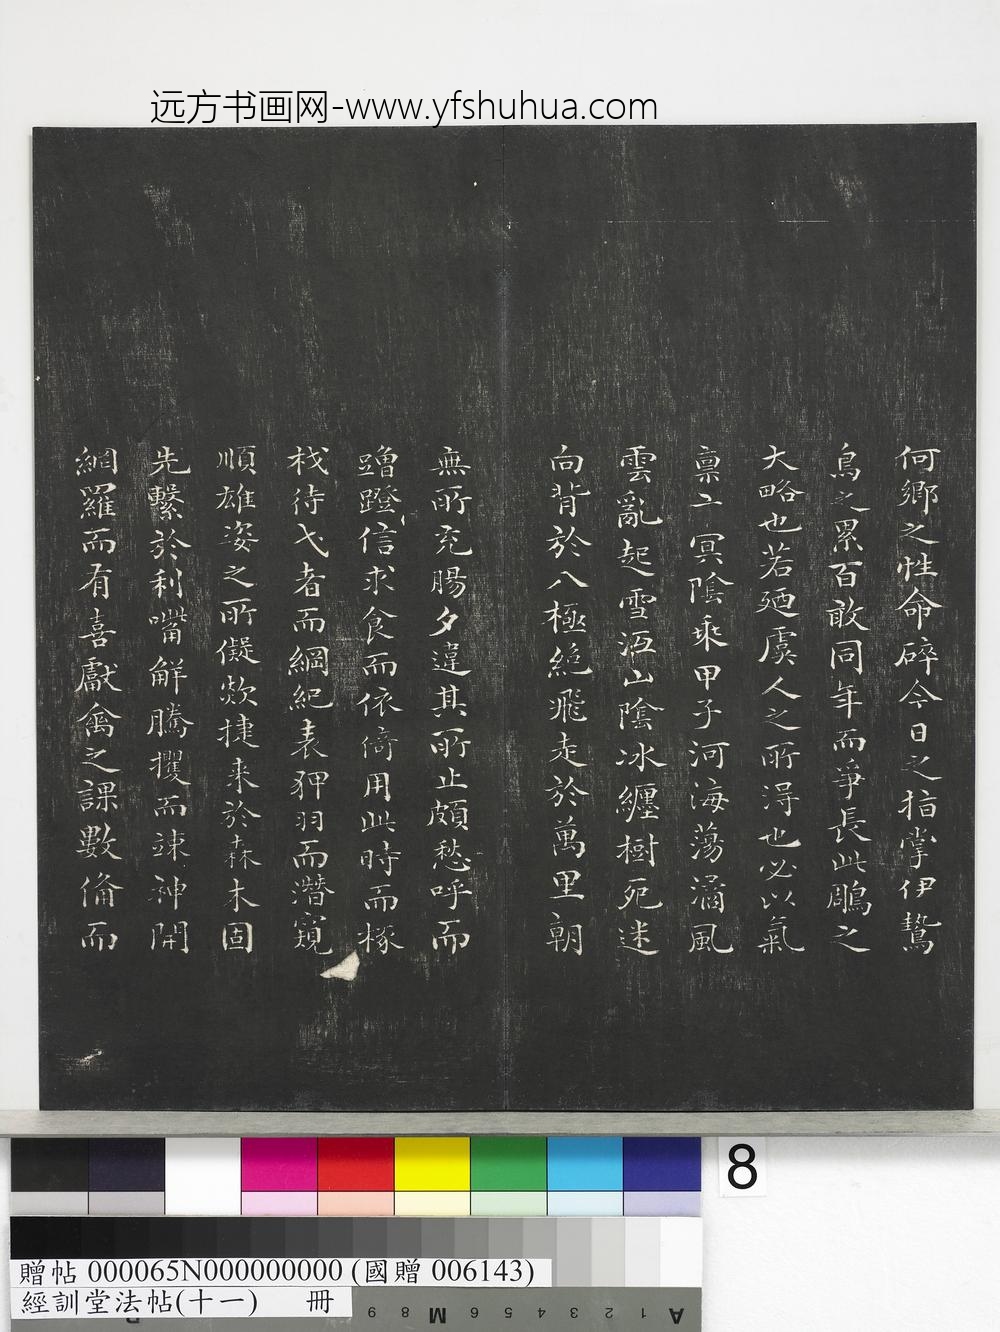 远方书画网-www.yfshuhua.com
何鄉之性命碎今日之指掌伊鷙
鳥之累百敢同年而爭長此鵰之
大略也若廼虞人之所得也必以氣
稟二冥陰乘甲子河海蕩潏風
雲亂起雪沍山陰冰纏樹死迷
向背於八極絕飛走於萬里朝
無所充腸夕違其所止頗愁呼而
蹭蹬信求食而依倚用此時而椓
杙待弋者而綱紀表狎羽而潛窺
順雄姿之所儗欻捷来於森木固
先繫於利嘴解騰攫而竦神開
網羅而有喜獻禽之課數俻而
8
贈帖 000065N000000000 (國贈 006143)
經訓堂法帖(十一) 冊
A 1 2 3 4 5 6 M 8 9